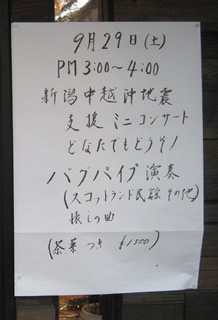 9月29日(土)
PM 3:00〜4:00
新潟中越沖地震
支援 ミニ コンサート
どなたでもどうぞ!
バグパイプ 演奏
(スコットランド民謡 その他)
癒しの曲
(茶菓つき ¥1500)